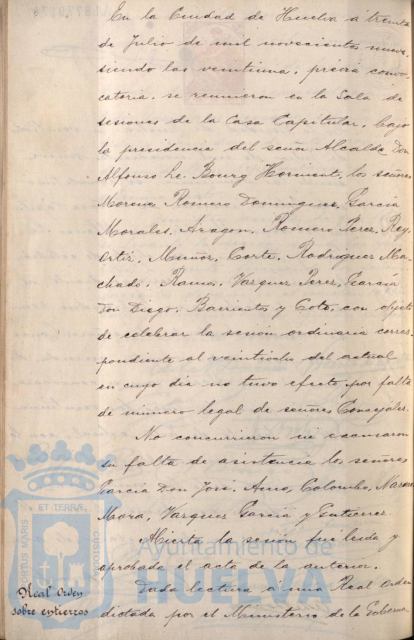 En la Ciudad de Huelva a treinta
de Julio de mil novecientos nueve
siendo las veintiuna, previa convo-
catoria, se reunieron en la Sala de
sesiones de la Casa Capitular, bajo
la presidencia del señor Alcalde Don
Alfonso Le Bourg Horment, los señores
Moreno, Romero Dominguez, Garcia
Morales, Aragon, Romero Perez, Rey,
Ortiz, Muñoz, Corte, Rodriguez Ma-
chado, Ramos, Vazquez Perez, Garcia
Don Diego, Barrientos y Coto, con objeto
de celebrar la sesión ordinaria corres-
pondiente al veintiocho del actual
en cuyo dia no tuvo efecto por falta
de número legal de señores Concejales.
No concurrieron ni excusaron
su falta de asistencia los señores
Garcia Don José, Colombo,
Mora, Vazquez Garcia y Gutierrez.
Abierta la sesión fué leida y
aprobada el acta de la anterior.
Real Orden
sobre entierros
Dada lectura a una Real Orden
dictada por el Ministerio de la Goberna
PORTUS MARIS
ET TERRAE
CUSTODIA
Ayuntamiento de
HUELVA